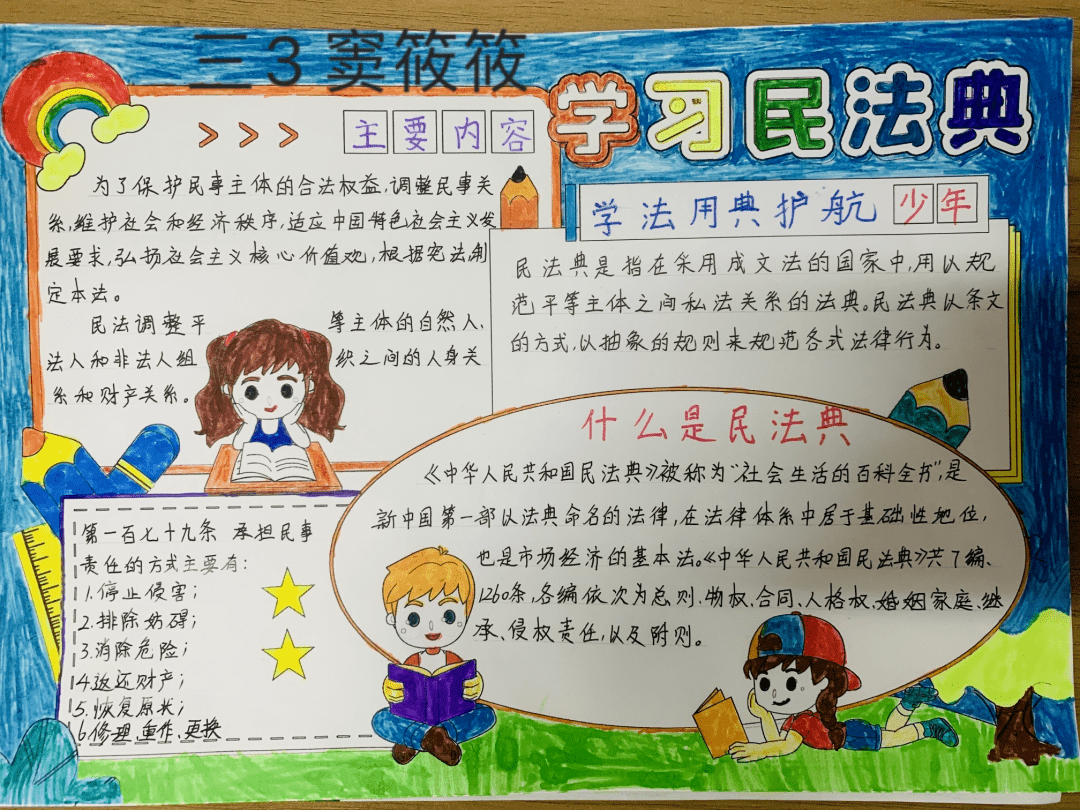 三3 窦筱筱
学习民法典
>>> 主要内容
为了保护民事主体的合法权益,调整民事关
系,维护社会和经济秩序,适应中国特色社会主义发
展要求,弘扬社会主义核心价值观,根据宪法,制
定本法。
民法调整平 等主体的自然人、
法人和非法人组 织之间的人身关
系和财产关系。
学法用典护航 少年
民法典是指在采用成文法的国家中,用以规
范平等主体之间私法关系的法典。民法典以条文
的方式,以抽象的规则来规范各式法律行为。
什么是民法典
《中华人民共和国民法典》被称为“社会生活的百科全书”,是
新中国第一部以法典命名的法律,在法律体系中居于基础性地位,
也是市场经济的基本法。《中华人民共和国民法典》共7编、
1260条,各编依次为总则、物权、合同、人格权、婚姻家庭、继
承、侵权责任,以及附则。
第一百七十九条 承担民事
责任的方式主要有:
1.停止侵害;
2.排除妨碍;
3.消除危险;
4.返还财产;
5.恢复原状;
6.修理、重作、更换